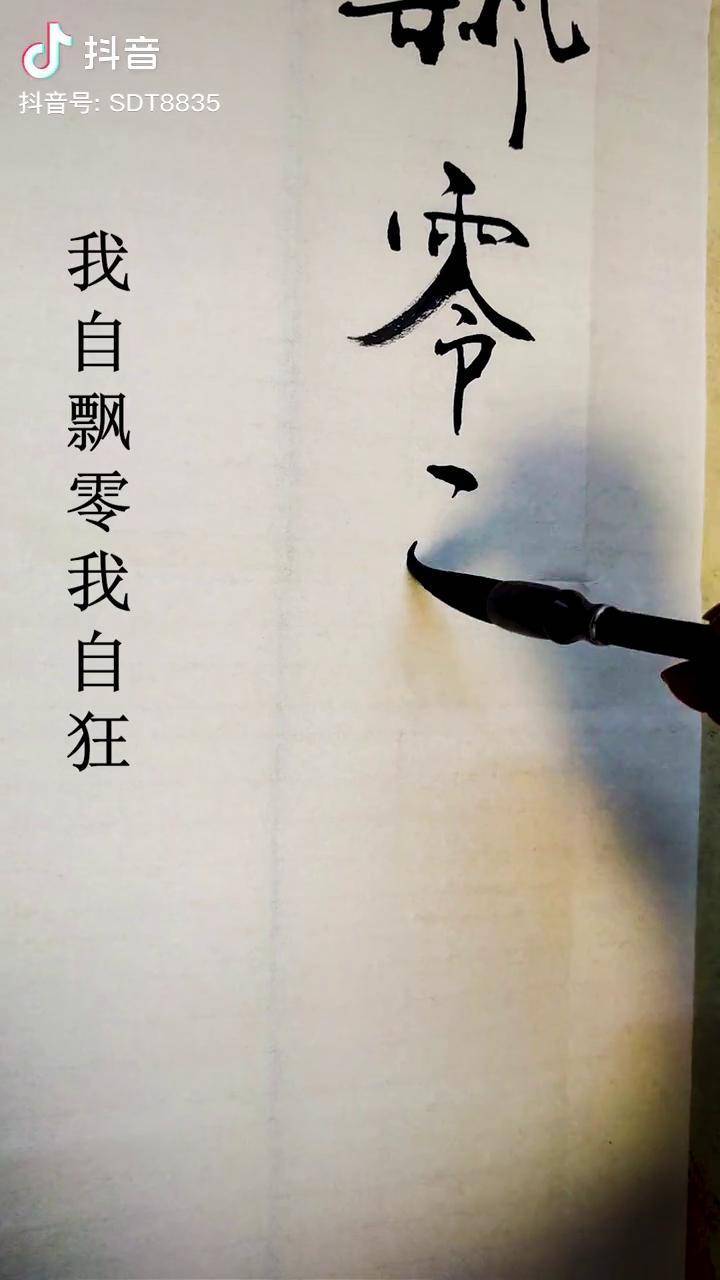 抖音
抖音号: SDT8835
飘零
我自飘零我自狂